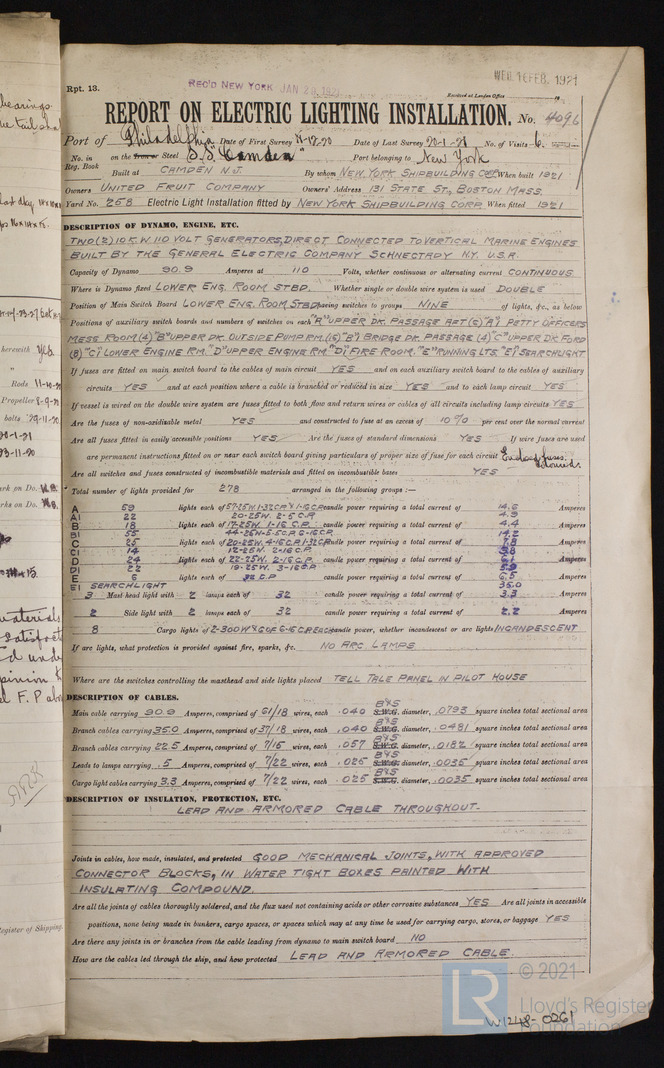 Rpt. 13.
REC'D NEW YORK JAN
WED. 16 FEB. 1921
Received at London Office
REPORT ON ELECTRIC LIGHTING INSTALLATION. No. 4096
Port of Philadelphia Date of First Survey Date of Last Survey 20-1-21 No. of Visits 6.
No. in Reg. Book on the Iron or Steel S.S. "Camden" Port belonging to New York
Built at CAMDEN N.J. By whom NEW YORK SHIPBUILDING CORP When built 1921
Owners UNITED FRUIT COMPANY Owners' Address 131 STATE ST., BOSTON MASS.
Yard No. 258 Electric Light Installation fitted by NEW YORK SHIPBUILDING CORP. When fitted 1921
DESCRIPTION OF DYNAMO, ENGINE, ETC.
TWO (2) 10 K.W. 110 VOLT GENERATORS, DIRECT CONNECTED TO VERTICAL MARINE ENGINES
BUILT BY THE GENERAL ELECTRIC COMPANY SCHNECTADY N.Y. U.S.A.
Capacity of Dynamo 90.9 Amperes at 110 Volts, whether continuous or alternating current CONTINUOUS
Where is Dynamo fixed LOWER ENG. ROOM STBD. Whether single or double wire system is used DOUBLE
Position of Main Switch Board LOWER ENG. ROOM STBD. having switches to groups NINE of lights, &c., as below
Positions of auxiliary switch boards and numbers of switches on each "A" UPPER DK. PASSAGE AFT (6) "A1" PETTY OFFICERS
MESS ROOM (4) "B" UPPER DK. OUTSIDE PUMP RM. (6) "B1" BRIDGE DK. PASSAGE (4) "C" UPPER DK. FORD
(8) "C1" LOWER ENGINE RM. "D" UPPER ENGINE RM. "D1" FIRE ROOM. "E" RUNNING LTS. "E1" SEARCHLIGHT
If fuses are fitted on main switch board to the cables of main circuit YES and on each auxiliary switch board to the cables of auxiliary
circuits YES and at each position where a cable is branched or reduced in size YES and to each lamp circuit YES
If vessel is wired on the double wire system are fuses fitted to both flow and return wires or cables of all circuits including lamp circuits YES
Are the fuses of non-oxidizable metal YES and constructed to fuse at an excess of 10% per cent over the normal current
Are all fuses fitted in easily accessible positions YES Are the fuses of standard dimensions YES If wire fuses are used
are permanent instructions fitted on or near each switch board giving particulars of proper size of fuse for each circuit
Are all switch and fuses constructed of incombustible materials and fitted on incombustible bases YES
Total number of lights provided for 278 arranged in the following groups :—
A 59 lights each of 57-25W. 1-32CP. candle power requiring a total current of 14.5 Amperes
A1 22 20-25W. 2-5 C.P. 4.9
B 18 lights each of 17-25W. 1-16 C.P. candle power requiring a total current of 4.4 Amperes
B1 55 44-25W-5-5C.P. 6-16C.P. 14.2
C 25 lights each of 20-25W. 4-16C.P. 1-32C.P. candle power requiring a total current of Amperes
C1 14 12-25W. 2-16 C.P.
D 24 lights each of 22-25W. 2-16C.P. candle power requiring a total current of Amperes
D1 22 19-25W. 3-16C.P.
E 6 lights each of 32 C.P candle power requiring a total current of 6.5 Amperes
E1 SEARCHLIGHT 35.0
3 Mast head light with 2 lamps each of 32 candle power requiring a total current of 3.3 Amperes
2 Side light with 2 lamps each of 32 candle power requiring a total current of 2.2 Amperes
8 Cargo lights of 2-300W & 6 OF 6-16 C.P. EACH candle power, whether incandescent or arc lights INCANDESCENT
If arc lights, what protection is provided against fire, sparks, &c. NO ARC LAMPS
Where are the switches controlling the masthead and side lights placed TELL TALE PANEL IN PILOT HOUSE
DESCRIPTION OF CABLES.
Main cable carrying 90.9 Amperes, comprised of 61/18 wires, each .040 B&S S.W.G. diameter, .0793 square inches total sectional area
Branch cables carrying 35.0 Amperes, comprised of 37/18 wires, each .040 B&S S.W.G. diameter, .0481 square inches total sectional area
Branch cables carrying 22.5 Amperes, comprised of 7/15 wires, each .057 B&S S.W.G. diameter, .0182 square inches total sectional area
Leads to lamps carrying .5 Amperes, comprised of 7/22 wires, each .025 B&S S.W.G. diameter, .0035 square inches total sectional area
Cargo light cables carrying 3.3 Amperes, comprised of 7/22 wires, each .025 B&S S.W.G. diameter, .0035 square inches total sectional area
DESCRIPTION OF INSULATION, PROTECTION, ETC.
LEAD AND ARMORED CABLE THROUGHOUT.
Joints in cables, how made, insulated, and protected GOOD MECHANICAL JOINTS, WITH APPROVED
CONNECTOR BLOCKS, IN WATER TIGHT BOXES PAINTED WITH
INSULATING COMPOUND.
Are all the joints of cables thoroughly soldered, and the flux used not containing acids or other corrosive substances YES Are all joints in accessible
positions, none being made in bunkers, cargo spaces, or spaces which may at any time be used for carrying cargo, stores, or baggage YES
Are there any joints in or branches from the cable leading from dynamo to main switch board NO
How are the cables led through the ship, and how protected LEAD AND ARMORED CABLE.
© 2021
LR Lloyd's Register
Foundation
W1248-0261